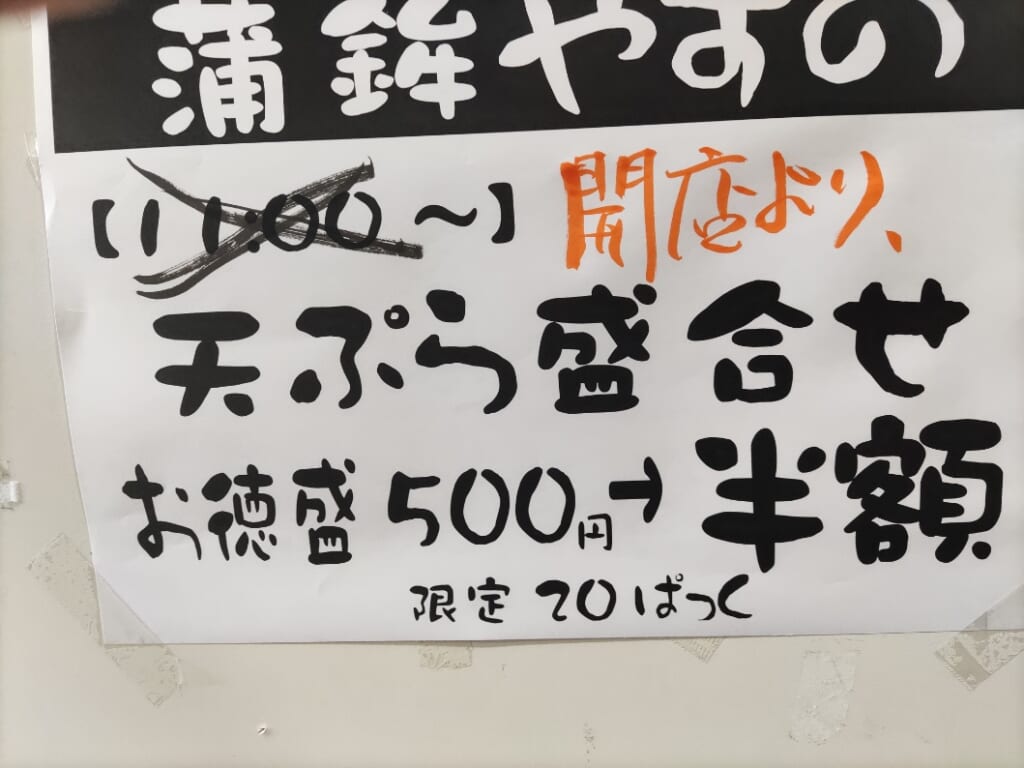 蒲鉾やすの
【11:00～】 開店より、
天ぷら盛合せ
お徳盛 500円→半額
限定 20ぱっく